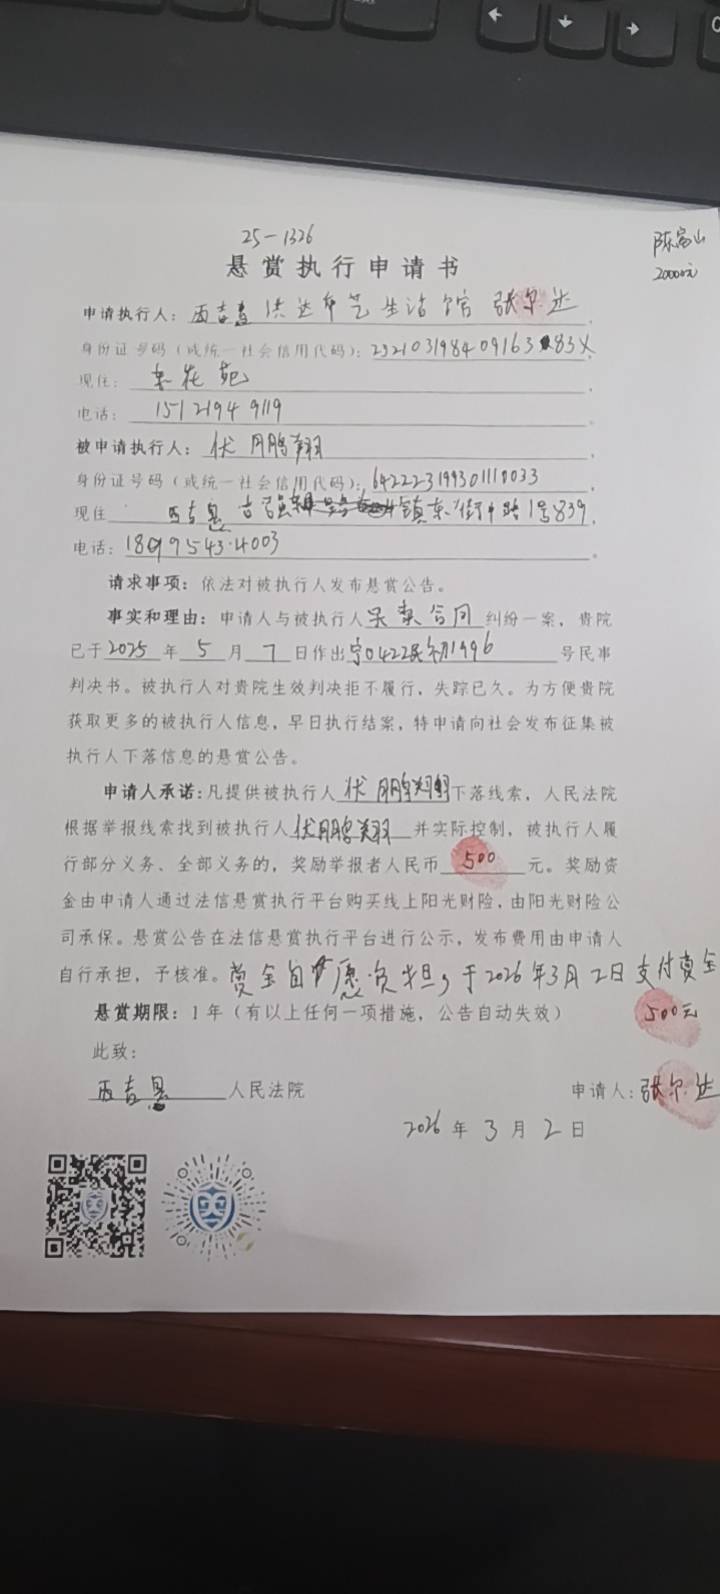 25-1326
陈富山
20000元
悬赏执行申请书
申请执行人：西吉县洪达布艺生活馆 张尔达
身份证号码（或统一社会信用代码）：
现住：东花苑
电话：15121949119
被申请执行人：伏鹏翔
身份证号码（或统一社会信用代码）：642223199301110033
现住 西吉县吉强镇东街中路1号839
电话：18095434003
请求事项：依法对被执行人发布悬赏公告。
事实和理由：申请人与被执行人 合同 纠纷一案，贵院
已于2025年5月7日作出宁0422民初1996号民事
判决书。被执行人对贵院生效判决拒不履行，失踪已久。为方便贵院
获取更多的被执行人信息，早日执行结案，特申请向社会发布征集被
执行人下落信息的悬赏公告。
申请人承诺：凡提供被执行人伏鹏翔下落线索，人民法院
根据举报线索找到被执行人伏鹏翔并实际控制，被执行人履
行部分义务、全部义务的，奖励举报者人民币500元。奖励资
金由申请人通过法信悬赏执行平台购买线上阳光财险，由阳光财险公
司承保。悬赏公告在法信悬赏执行平台进行公示，发布费用由申请人
自行承担，予核准。赏金自愿负担，于2026年3月2日支付赏金
500元
悬赏期限：1年（有以上任何一项措施，公告自动失效）
此致：
西吉县人民法院
申请人：张尔达
2026年3月2日